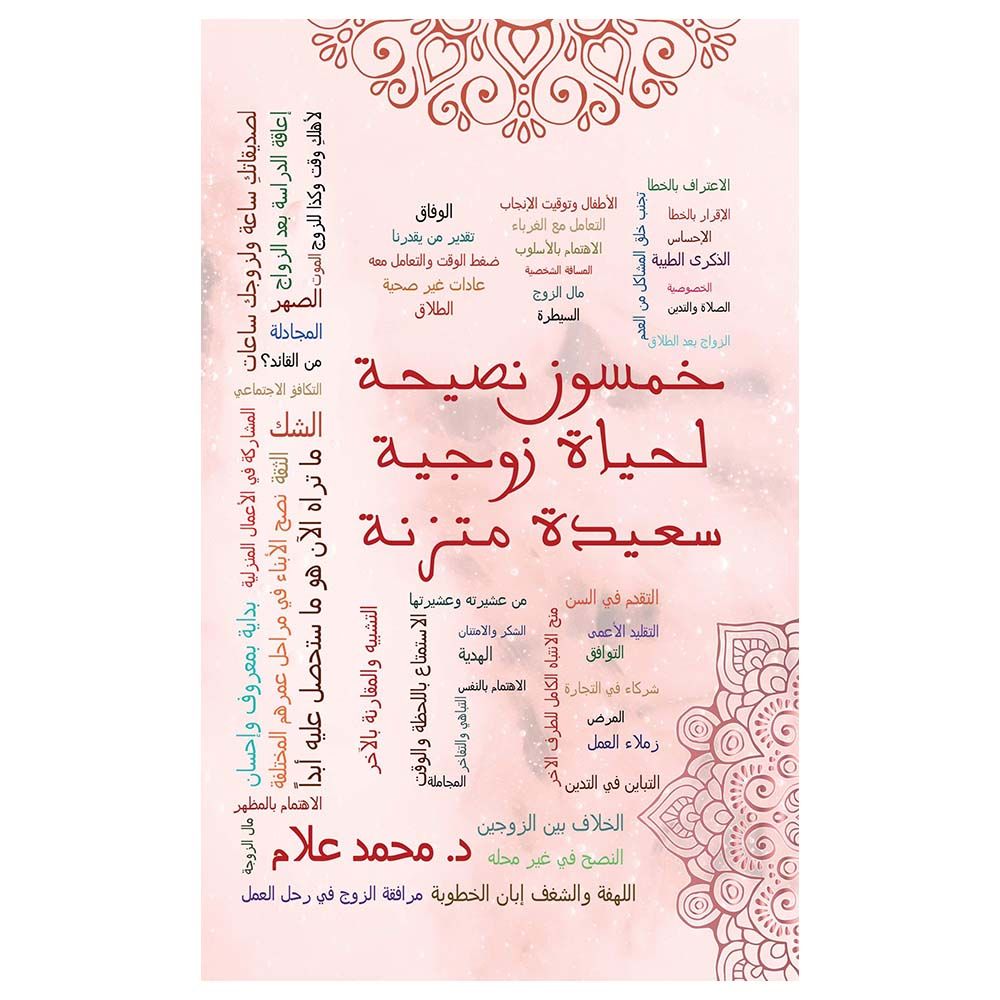 الاعتراف بالخطأ
الإقرار بالخطأ
الإحساس
الذكرى الطيبة
الخصوصية
الصلاة والتدين
الزواج بعد الطلاق
تجنب خلق المشاكل من العدم
الأطفال وتوقيت الإنجاب
التعامل مع الغرباء
الاهتمام بالأسلوب
المسافة الشخصية
مال الزوج
السيطرة
الوفاق
تقدير من يقدرنا
ضغط الوقت والتعامل معه
عادات غير صحية
الطلاق
لأهلك وقت وكذا للزوج
الموت
إعاقة الدراسة بعد الزواج
لصديقاتكِ ساعة ولزوجك ساعات
الصهر
المجادلة
من القائد؟
التكافؤ الاجتماعي
خمسون نصيحة
لحياة زوجية
سعيدة متزنة
الشك
الثقة
ما تراه الآن هو ما ستحصل عليه أبداً
نصح الأبناء في مراحل عمرهم المختلفة
المشاركة في الأعمال المنزلية
بداية بمعروف وإحسان
التقدم في السن
التقليد الأعمى
التوافق
شركاء في التجارة
المرض
زملاء العمل
التباين في التدين
منح الانتباه الكامل للطرف الآخر
من عشيرته وعشيرتها
الشكر والامتنان
الهدية
الاهتمام بالنفس
التباهي والتفاخر
المجاملة
الاستمتاع باللحظة والوقت
التشبيه والمقارنة بالآخر
الاهتمام بالمظهر
مال الزوجة
الخلاف بين الزوجين
د. محمد علام
النصح في غير محله
اللهفة والشغف إبان الخطوبة
مرافقة الزوج في رحل العمل